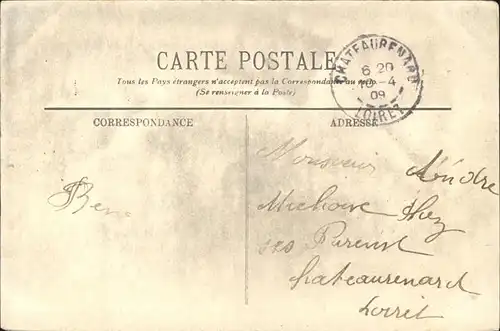 CARTE POSTALE
Tous les Pays étrangers n'acceptent pas la Correspondance au recto.
(Se renseigner à la Poste)
CHATEAURENARD
6 20
10 - 4
09
LOIRET
CORRESPONDANCE
ADRESSE
Monsieur André
Michoue chez
ses Parents
Chateaurenard
Loiret